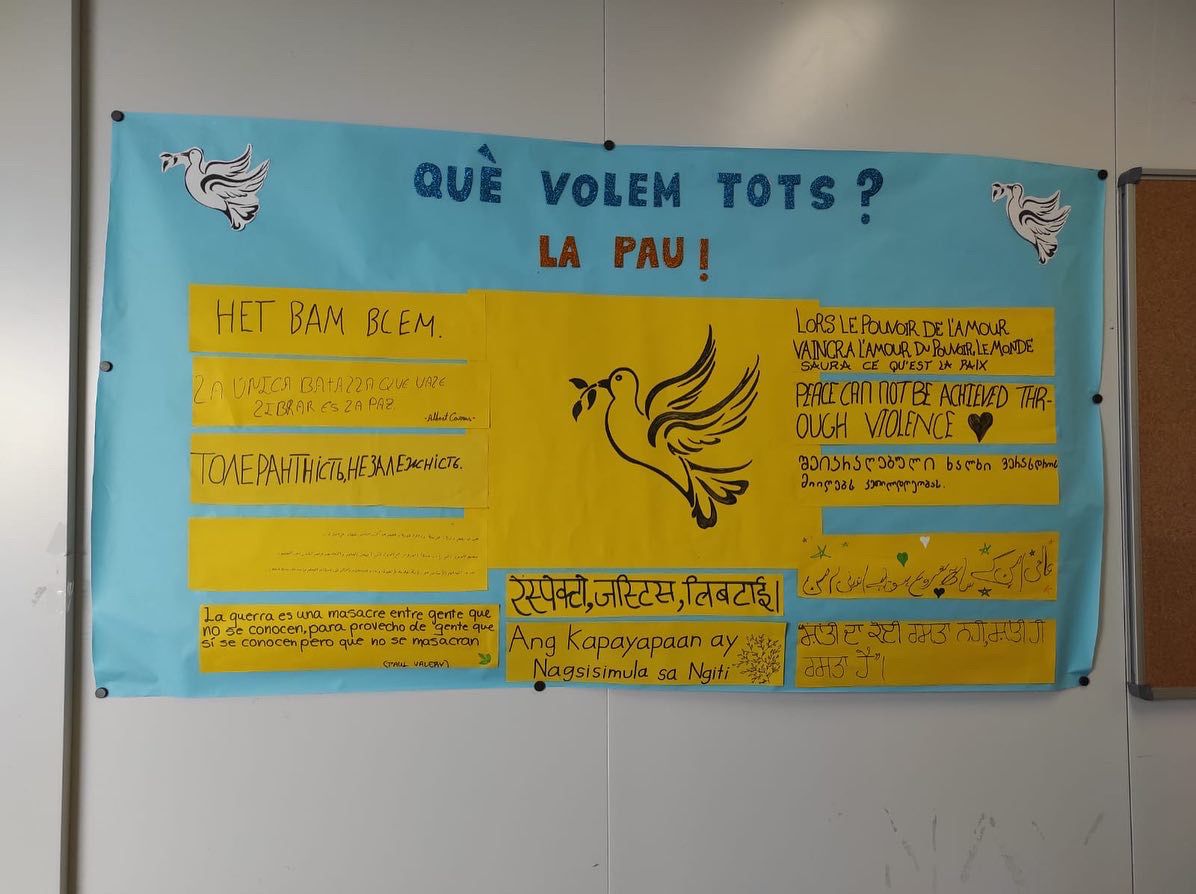 QUÈ VOLEM TOTS?
LA PAU!
НЕТ ВАМ ВСЕМ.
LA UNICA BATALLA QUE VALE
LIBRAR ES LA PAZ
-Albert Camus-
ТОЛЕРАНТНІСТЬ,НЕЗАЛЕЖНІСТЬ.
La guerra es una masacre entre gente que
no se conocen, para provecho de gente que
sí se conocen pero que no se masacran
(PAUL VALERY)
रेस्पेक्टो,जस्टिस,लिबटाई।
Ang Kapayapaan ay
Nagsisimula sa Ngiti
LORS LE POUVOIR DE L'AMOUR
VAINCRA L'AMOUR DU POUVOIR, LE MONDE
SAURA CE QU'EST LA PAIX
PEACE CAN NOT BE ACHIEVED THR-
OUGH VIOLENCE
შეიარაღებული ხალხი ვერასდროს
მიიღებს კეთილდღეობას.
"ਸ਼ਾਂਤੀ ਦਾ ਕੋਈ ਰਸਤਾ ਨਹੀਂ,ਸ਼ਾਂਤੀ ਹੀ
ਰਸਤਾ ਹੈ"।